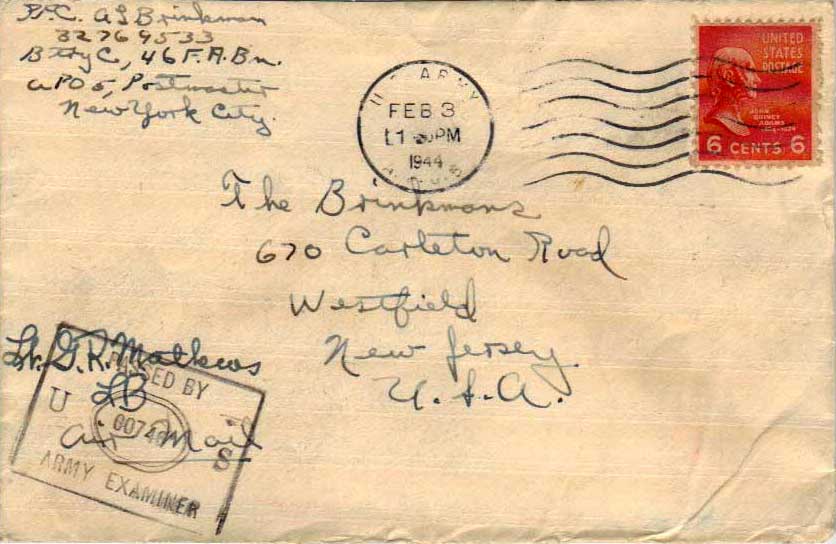 Pvt. A L Brinkman
32769533
Btry C, 46 F.A. Bn.
APO 5, Postmaster
New York City.
U.S. ARMY
FEB 3
PM
1944
UNITED
STATES
POSTAGE
JOHN
QUINCY
ADAMS
6 CENTS 6
The Brinkmans
670 Carleton Road
Westfield
New Jersey
U.S.A.
Lt. G.R. Mathews
PASSED BY
U S
Air Mail
ARMY EXAMINER